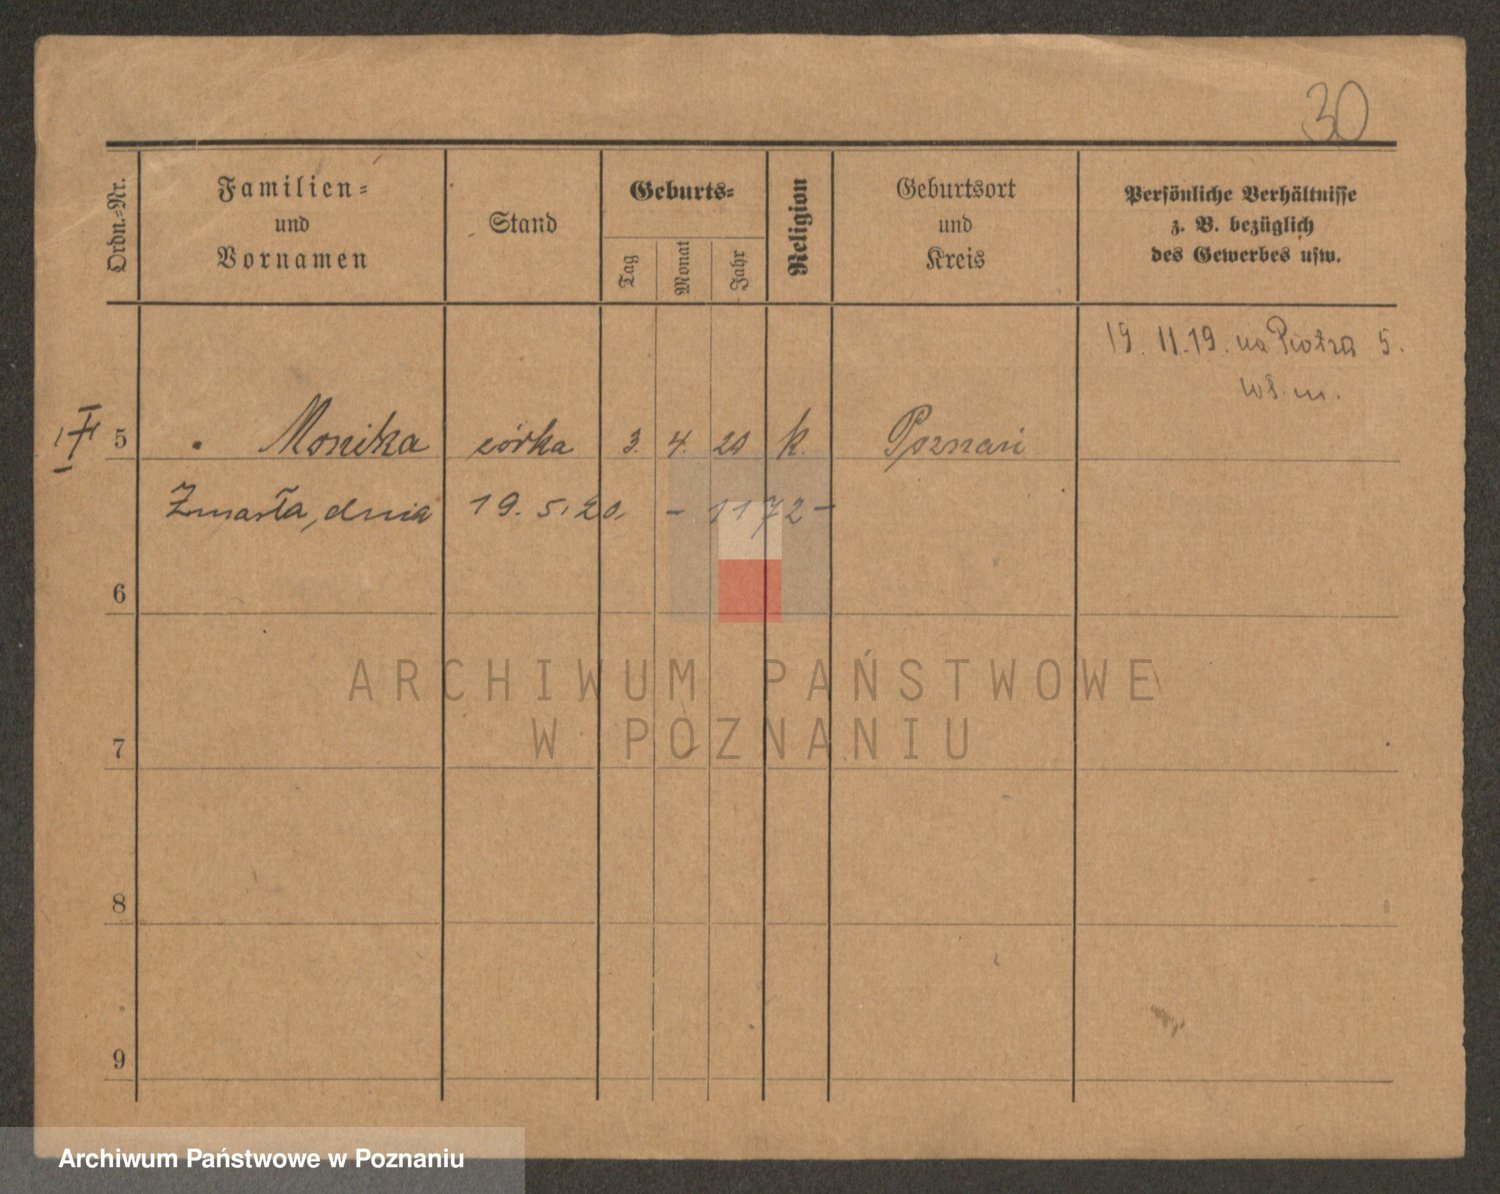 30
Ordn.=Nr.
Familien=
und
Vornamen
Stand
Geburts=
Tag
Monat
Jahr
Religion
Geburtsort
und
Kreis
Persönliche Verhältnisse
z. B. bezüglich
des Gewerbes usw.
19. 11. 19. na Piotra 5.
5 Monika córka 3. 4. 20 k. Poznań
Zmarła, dnia 19. 5. 20. - 1172 -
6
7
8
9
ARCHIWUM PAŃSTWOWE
W POZNANIU
Archiwum Państwowe w Poznaniu